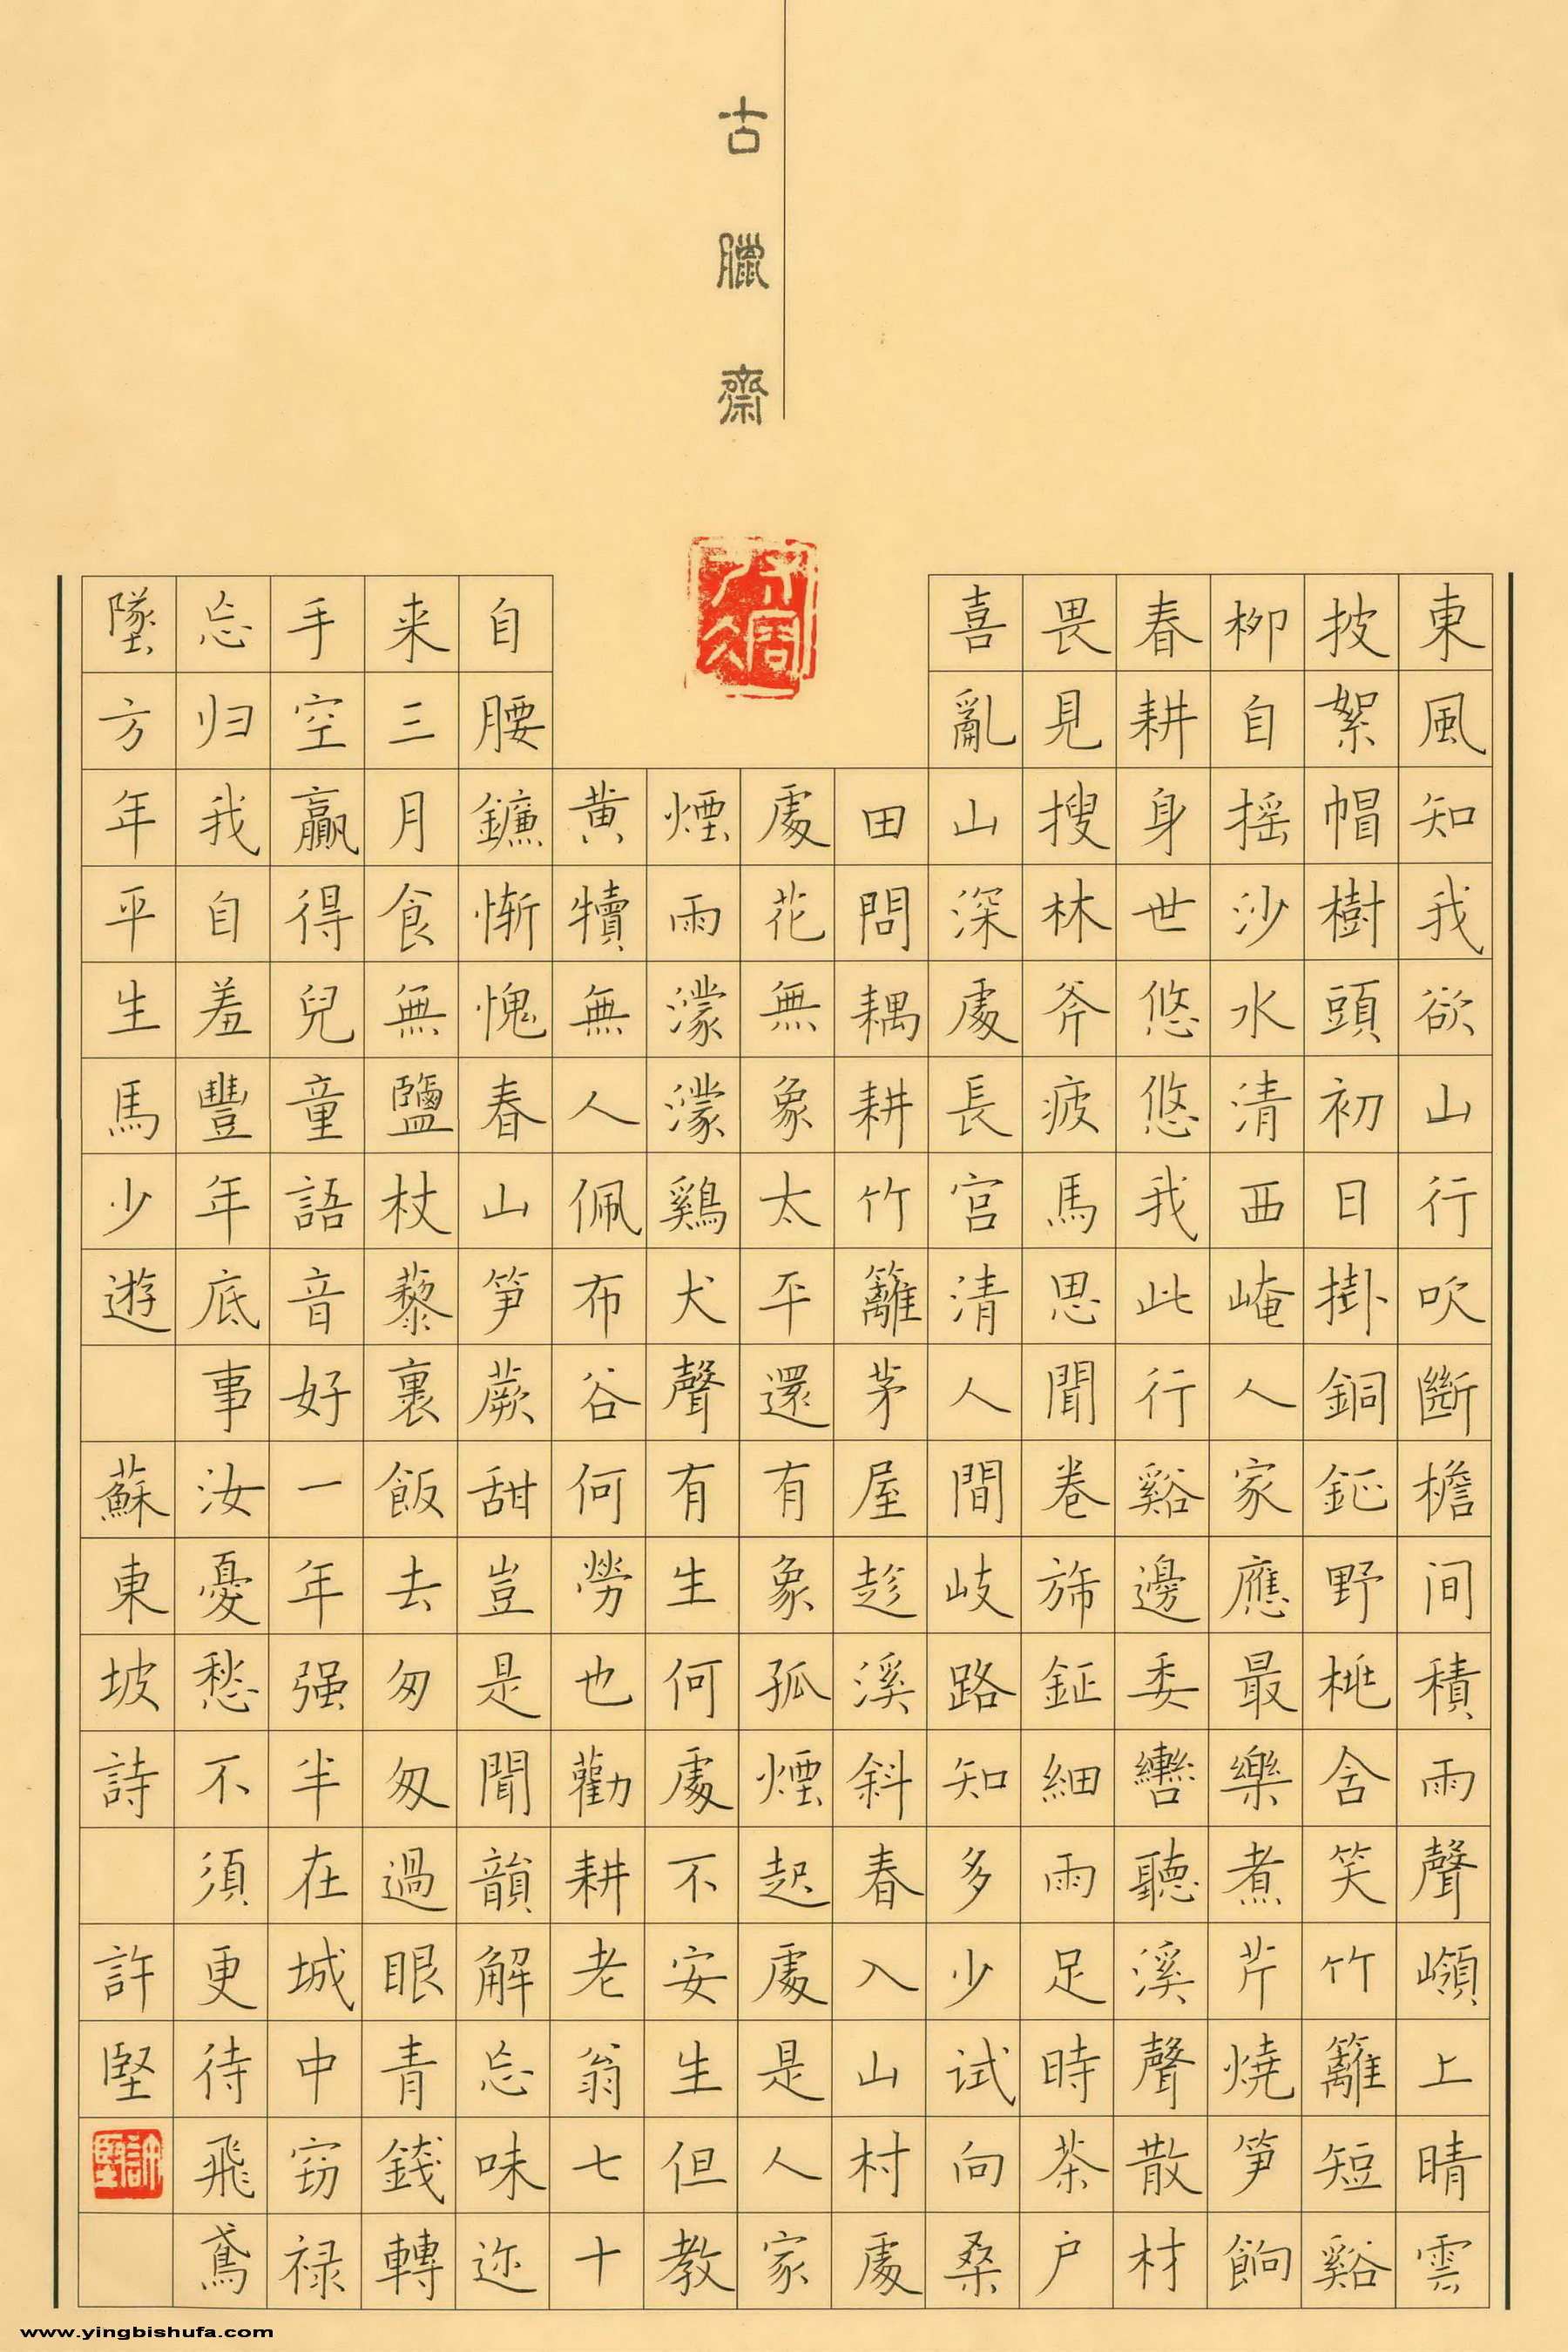 古臘齋
東風知我欲山行吹斷檐间積雨聲嶺上晴雲
披絮帽樹頭初日掛銅鉦野桃含笑竹籬短谿
柳自摇沙水清西崦人家應最樂煮芹燒笋餉
春耕身世悠悠我此行谿邊委轡聽溪聲散材
畏見搜林斧疲馬思聞卷斾鉦細雨足時茶户
喜亂山深處長宫清人間岐路知多少试向桑
田問耦耕竹籬茅屋趁溪斜春入山村處
處花無象太平還有象孤煙起處是人家
煙雨濛濛鷄犬聲有生何處不安生但教
黄犢無人佩布谷何勞也勸耕老翁七十
自腰鐮惭愧春山笋蕨甜豈是聞韻解忘味迩
来三月食無鹽杖藜裹飯去匆匆過眼青錢轉
手空贏得兒童語音好一年强半在城中窃禄
忘归我自羞豐年底事汝憂愁不須更待飛鳶
墜方年平生馬少遊 蘇東坡詩 許堅
許堅
www.yingbishufa.com